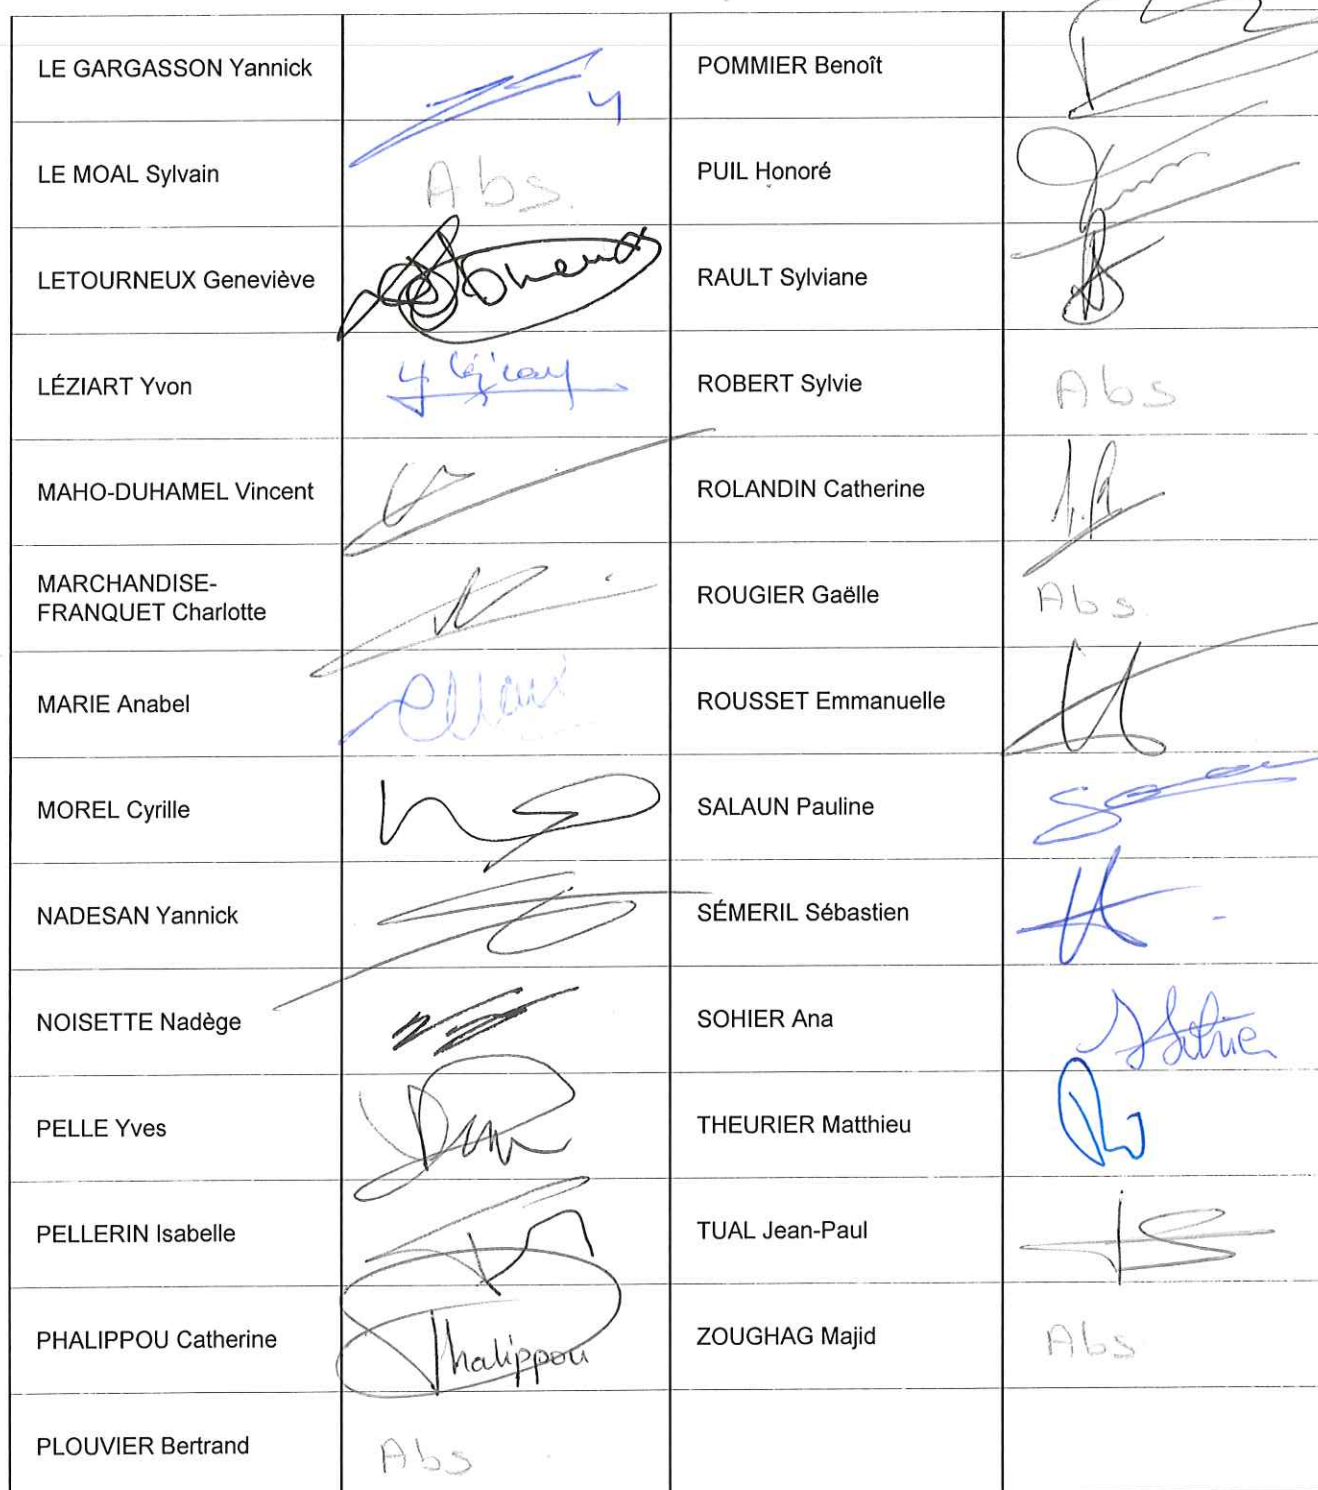 LE GARGASSON Yannick
POMMIER Benoît
LE MOAL Sylvain
Abs.
PUIL Honoré
LETOURNEUX Geneviève
RAULT Sylviane
LÉZIART Yvon
ROBERT Sylvie
Abs
MAHO-DUHAMEL Vincent
ROLANDIN Catherine
MARCHANDISE-
FRANQUET Charlotte
ROUGIER Gaëlle
Abs.
MARIE Anabel
ROUSSET Emmanuelle
MOREL Cyrille
SALAUN Pauline
NADESAN Yannick
SÉMERIL Sébastien
NOISETTE Nadège
SOHIER Ana
PELLE Yves
THEURIER Matthieu
PELLERIN Isabelle
TUAL Jean-Paul
PHALIPPOU Catherine
Phalippou
ZOUGHAG Majid
Abs
PLOUVIER Bertrand
Abs